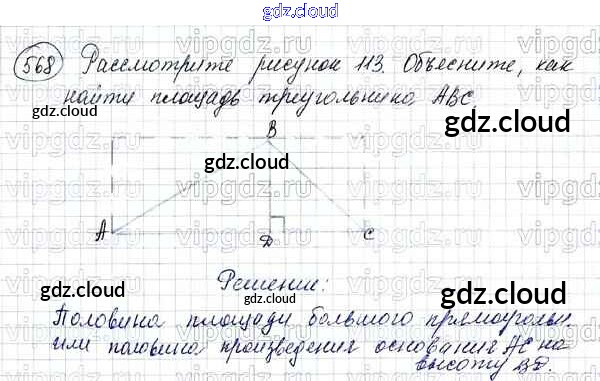 gdz.cloud
568 Рассмотрите рисунок 113. Объясните, как
найти площадь треугольника ABC
gdz.cloud
gdz.cloud
B
gdz.cloud
A
D
C
Решение:
gdz.cloud
gdz.cloud
gdz.cloud
Половина площади большого прямоугольн.
или половина произведения основания AC на
высоту BD.
gdz.cloud